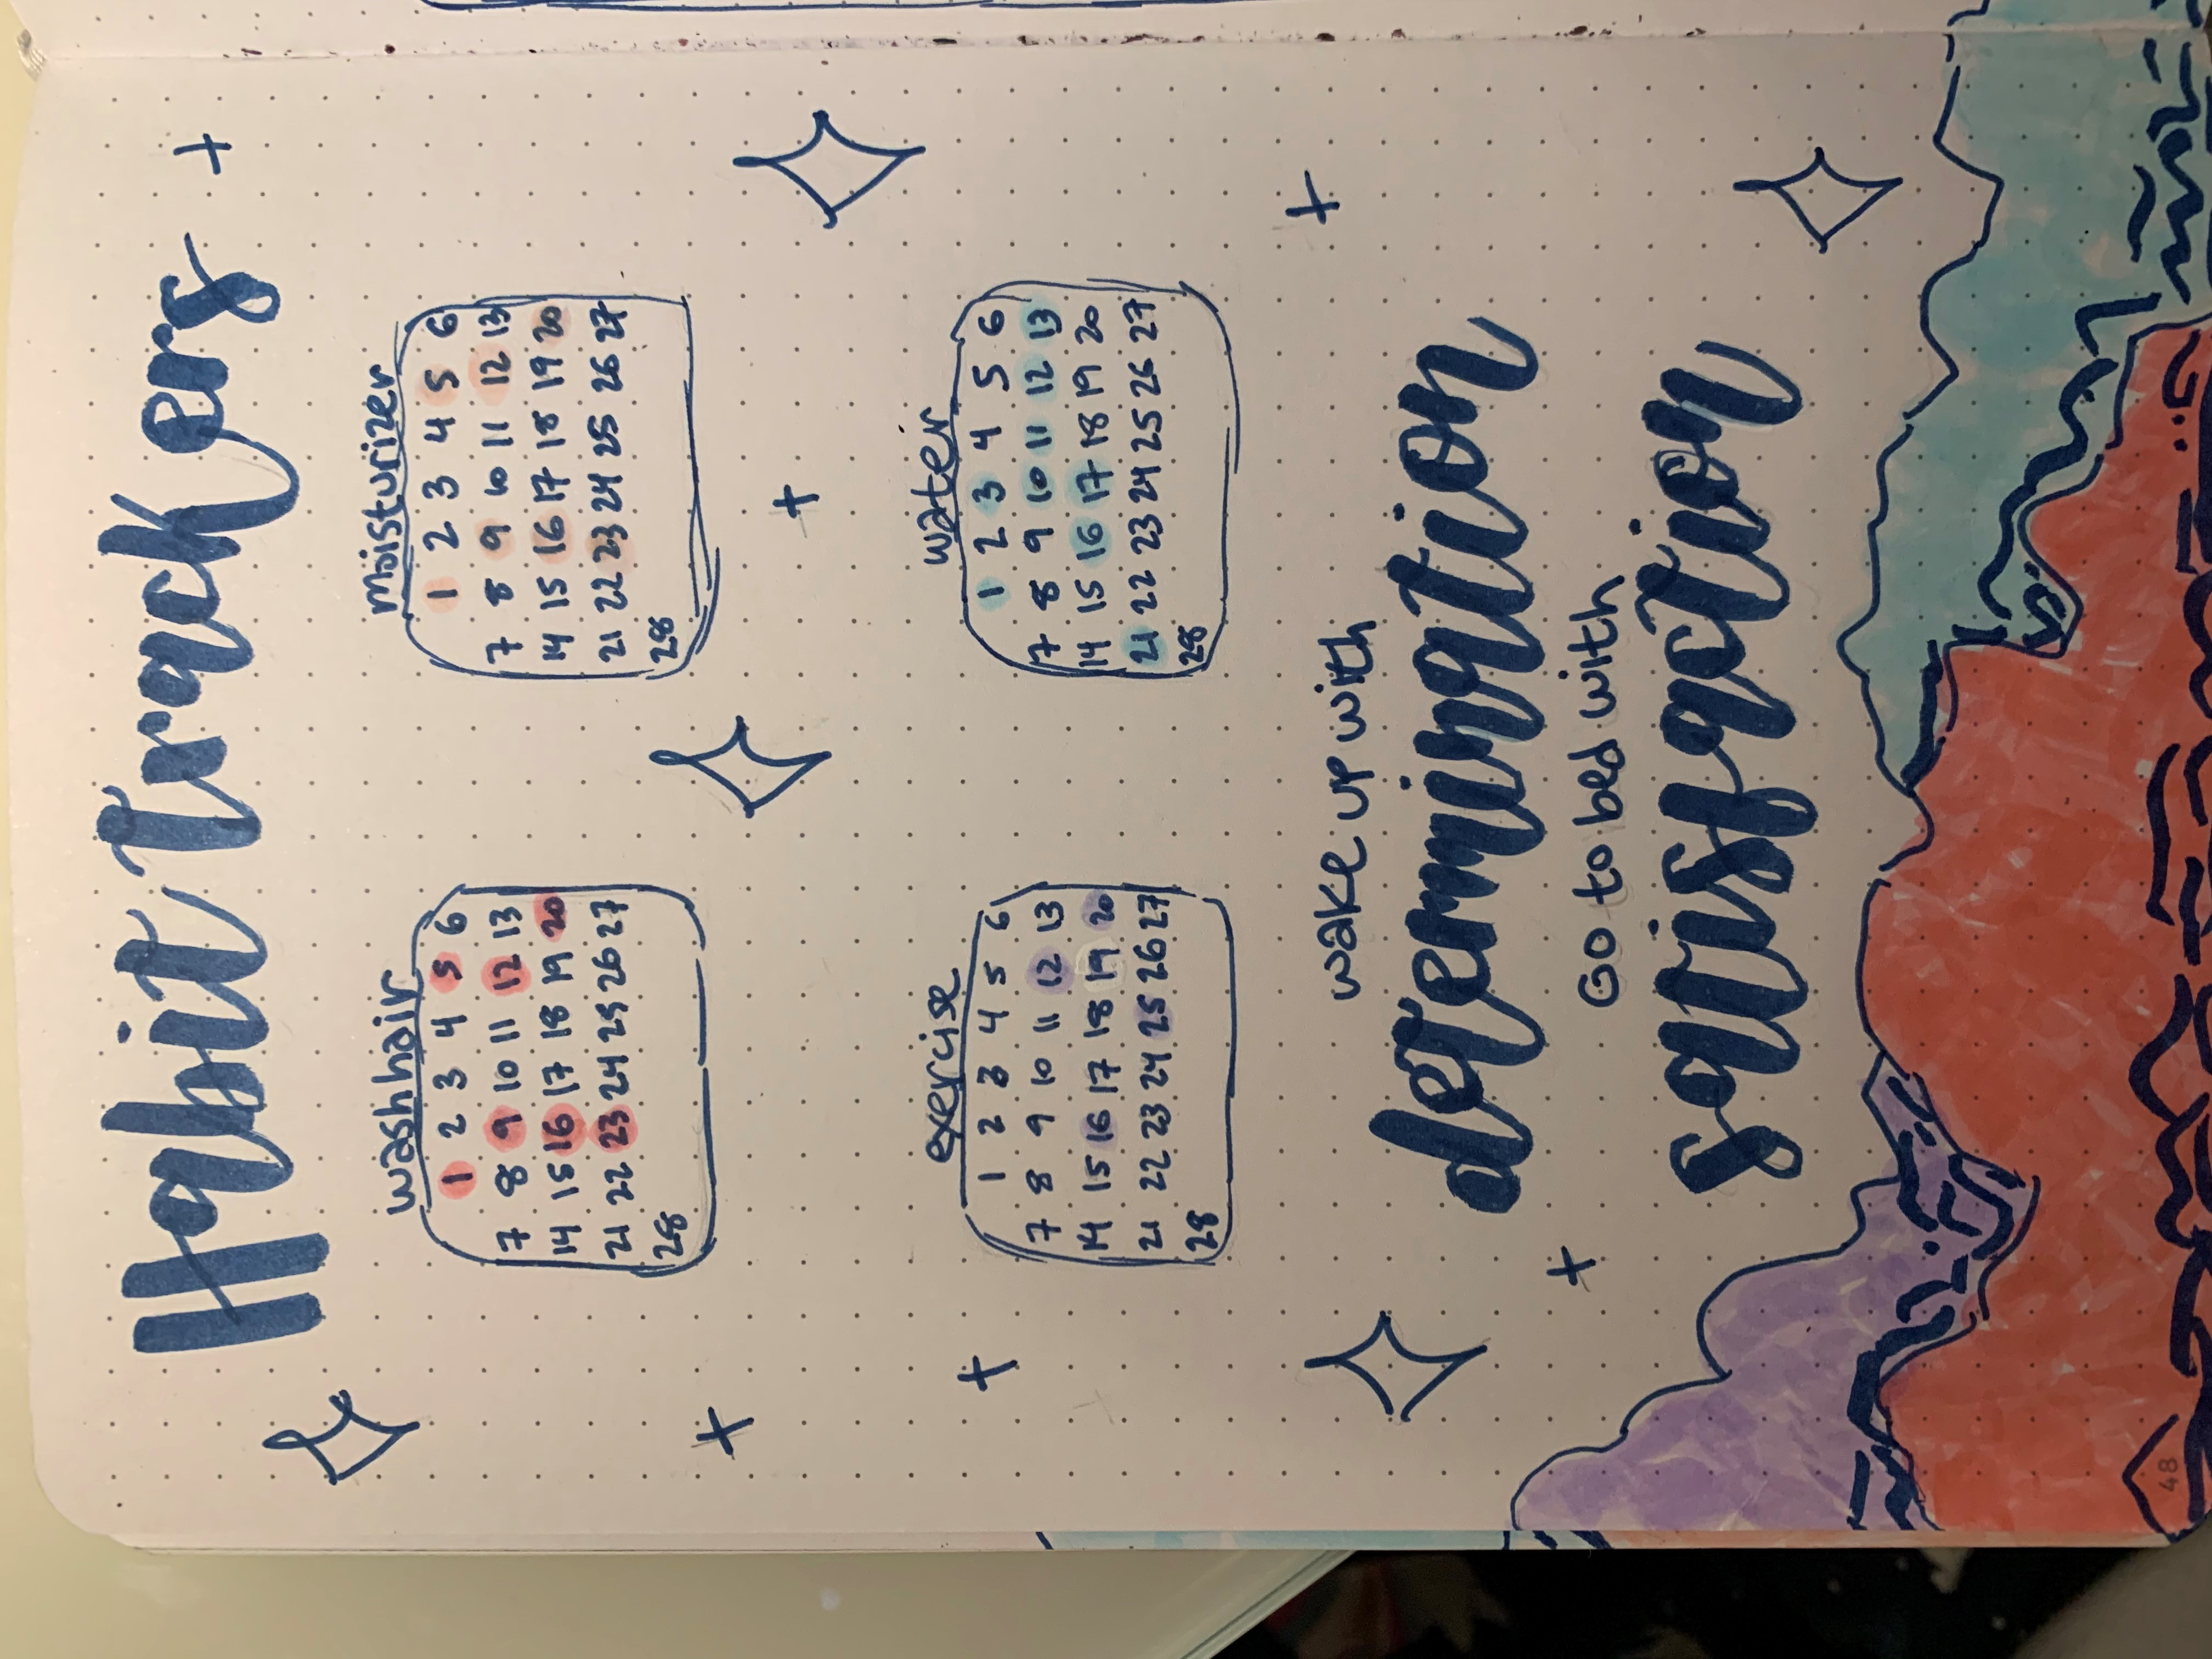 Habit Trackers
wash hair
1 2 3 4 5 6
7 8 9 10 11 12 13
14 15 16 17 18 19 20
21 22 23 24 25 26 27
28
moisturizer
1 2 3 4 5 6
7 8 9 10 11 12 13
14 15 16 17 18 19 20
21 22 23 24 25 26 27
28
exercise
1 2 3 4 5 6
7 8 9 10 11 12 13
14 15 16 17 18 19 20
21 22 23 24 25 26 27
28
water
1 2 3 4 5 6
7 8 9 10 11 12 13
14 15 16 17 18 19 20
21 22 23 24 25 26 27
28
wake up with
determination
Go to bed with
satisfaction
48